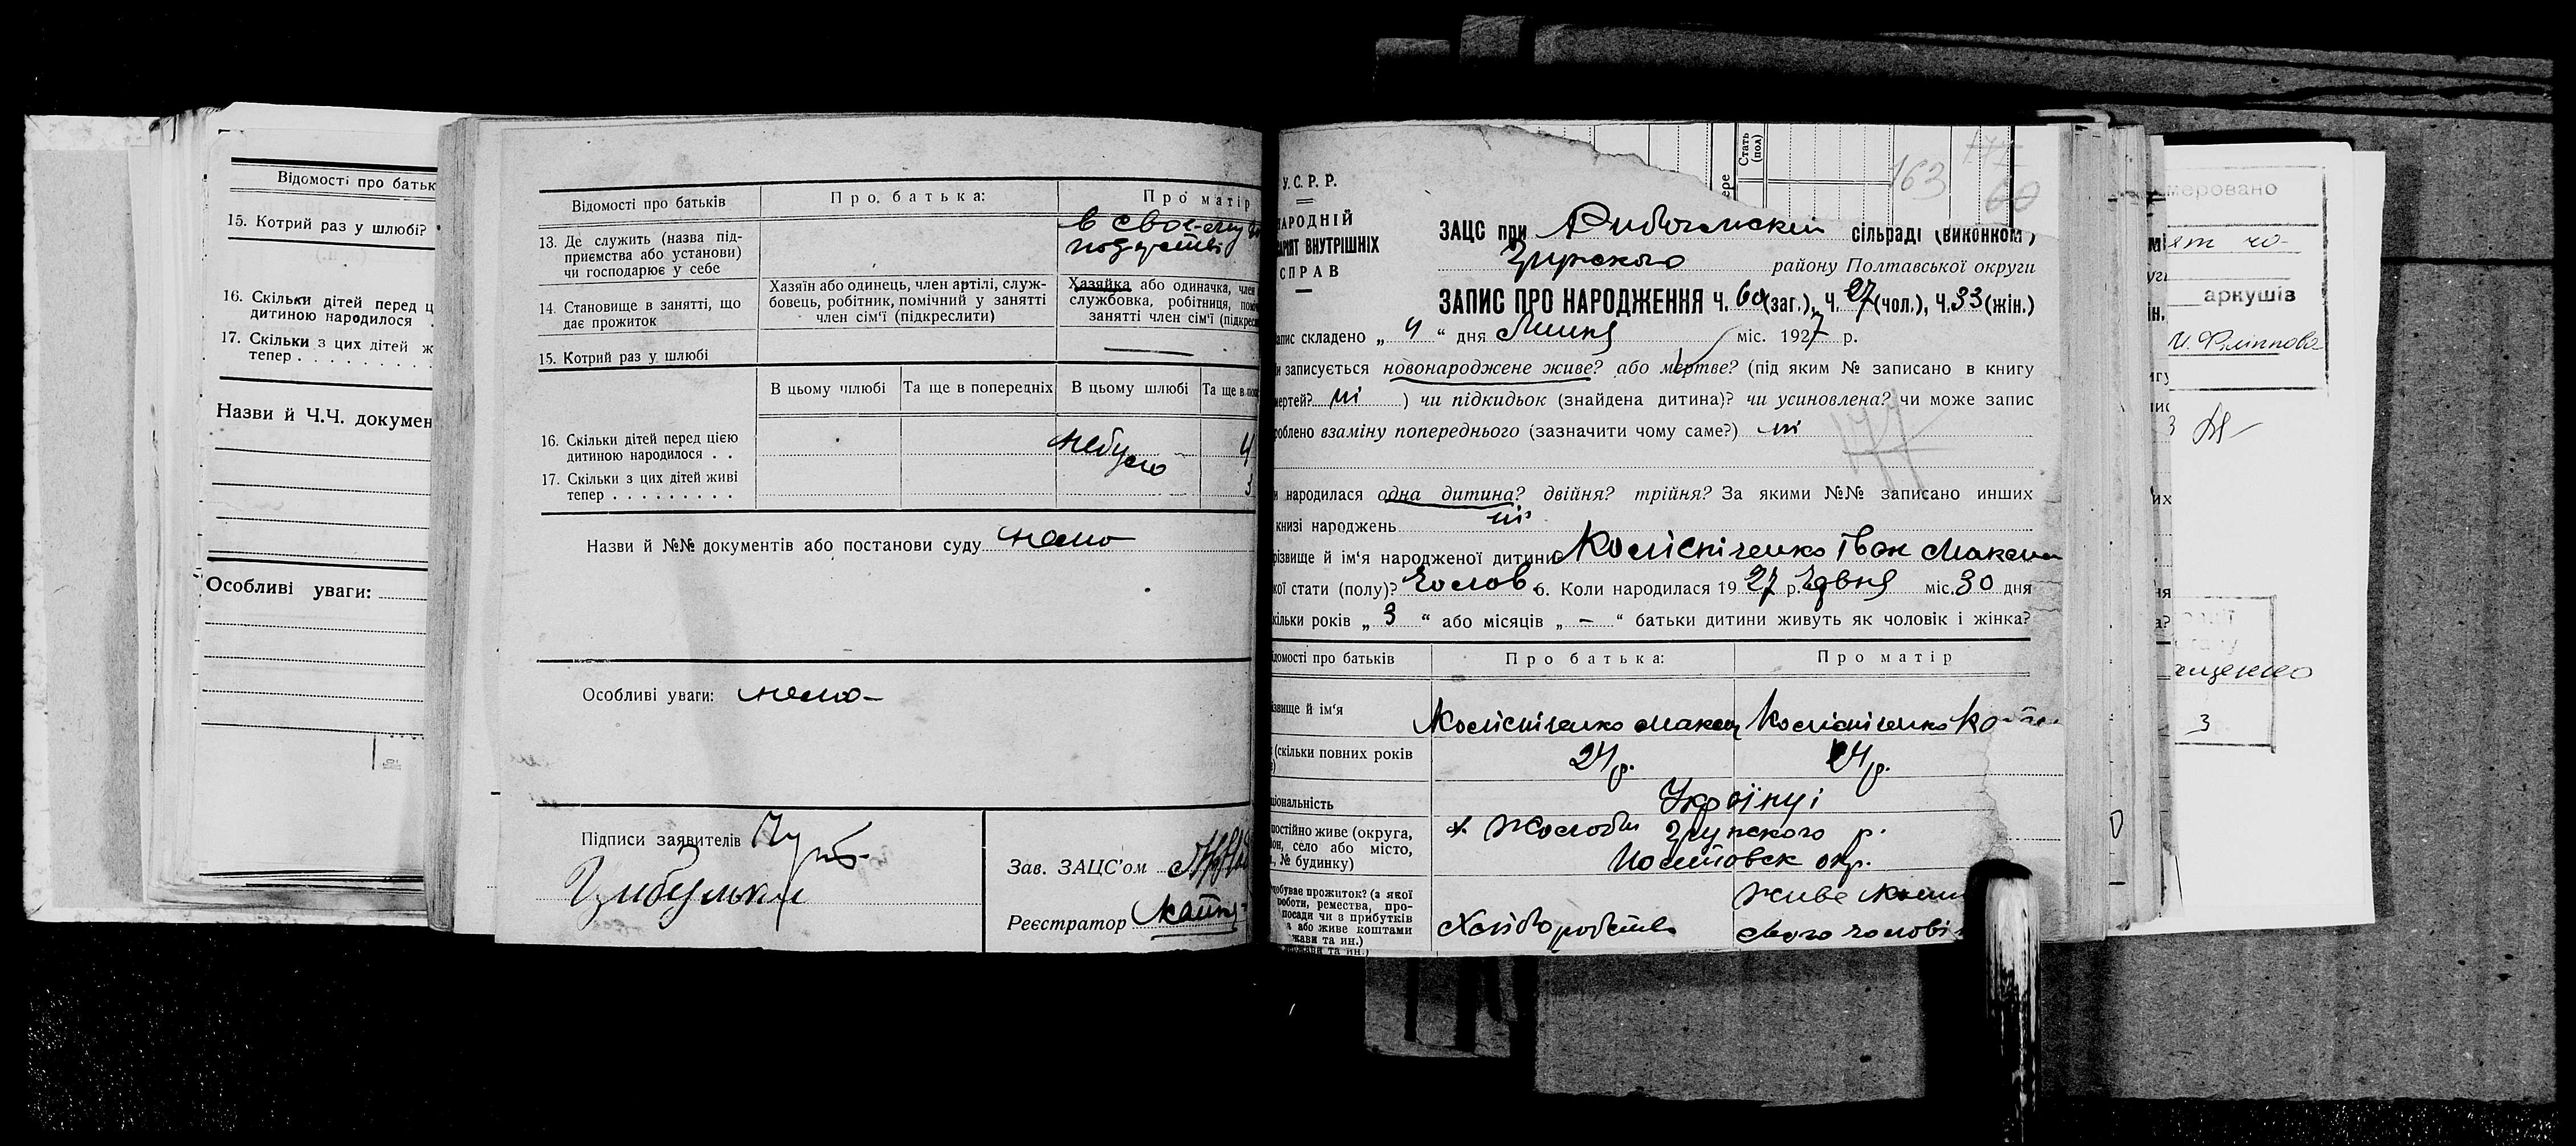 Відомості про батьк
15. Котрий раз у шлюбі?
16. Скільки дітей перед ц
дитиною народилося .
17. Скільки з цих дітей ж
тепер . . . . . . . .
Назви й Ч.Ч. докумен
Особливі уваги:
Відомості про батьків
Про батька:
Про матір
13. Де служить (назва під-
приємства або установи)
чи господарює у себе
в своєму
14. Становище в занятті, що
дає прожиток
Хазяїн або одинець, член артілі, служ-
бовець, робітник, помічний у занятті
член сім'ї (підкреслити)
Хазяйка або одиначка, член
службовка, робітниця, помі
занятті член сім'ї (підкресл
15. Котрий раз у шлюбі
—
В цьому шлюбі
Та ще в попередніх
В цьому шлюбі
Та ще в поп
16. Скільки дітей перед цією
дитиною народилося . .
небуло
4
17. Скільки з цих дітей живі
тепер . . . . . . . . .
3
Назви й №№ документів або постанови суду нема
Особливі уваги: нема
Підписи заявителів
Цибульки
Зав. ЗАЦС'ом
Реєстратор
163
177
60
Стать
(пол)
ере
У. С. Р. Р.
НАРОДНІЙ
АРІЯТ ВНУТРІШНІХ
СПРАВ
ЗАЦС при сільраді (виконком)
району Полтавської округи
ЗАПИС ПРО НАРОДЖЕННЯ Ч. 60 (заг.), Ч. 27 (чол.), Ч. 33 (жін.)
апис складено „ 4 “ дня Липня міс. 1927 р.
и записується новонароджене живе? або мертве? (під яким № записано в книгу
мертей? ні ) чи підкидьок (знайдена дитина)? чи усиновлена? чи може запис
роблено взаміну попереднього (зазначити чому саме?) ні
177
и народилася одна дитина? двійня? трійня? За якими №№ записано инших
книзі народжень ні
різвище й ім'я народженої дитини Колісніченко Іван Макси
кої стати (полу)? Чолов 6. Коли народилася 1927 р. Червня міс. 30 дня
кільки років „ 3 “ або місяців „ — “ батьки дитини живуть як чоловік і жінка?
ідомості про батьків
Про батька:
Про матір
ізвище й ім'я
Колісніченко Макси
Колісніченко
(скільки повних років
24 р.
24 р.
ціональність
Українці
постійно живе (округа,
он, село або місто,
, № будинку)
х. Жолоби р.
Полтавск окр.
добуває прожиток? (з якої
роботи, ремества, про-
посади чи з прибутків
а або живе коштами
жави та ин.)
Хліборобство
живе кошт
свого чолові
меровано
аркушів
3